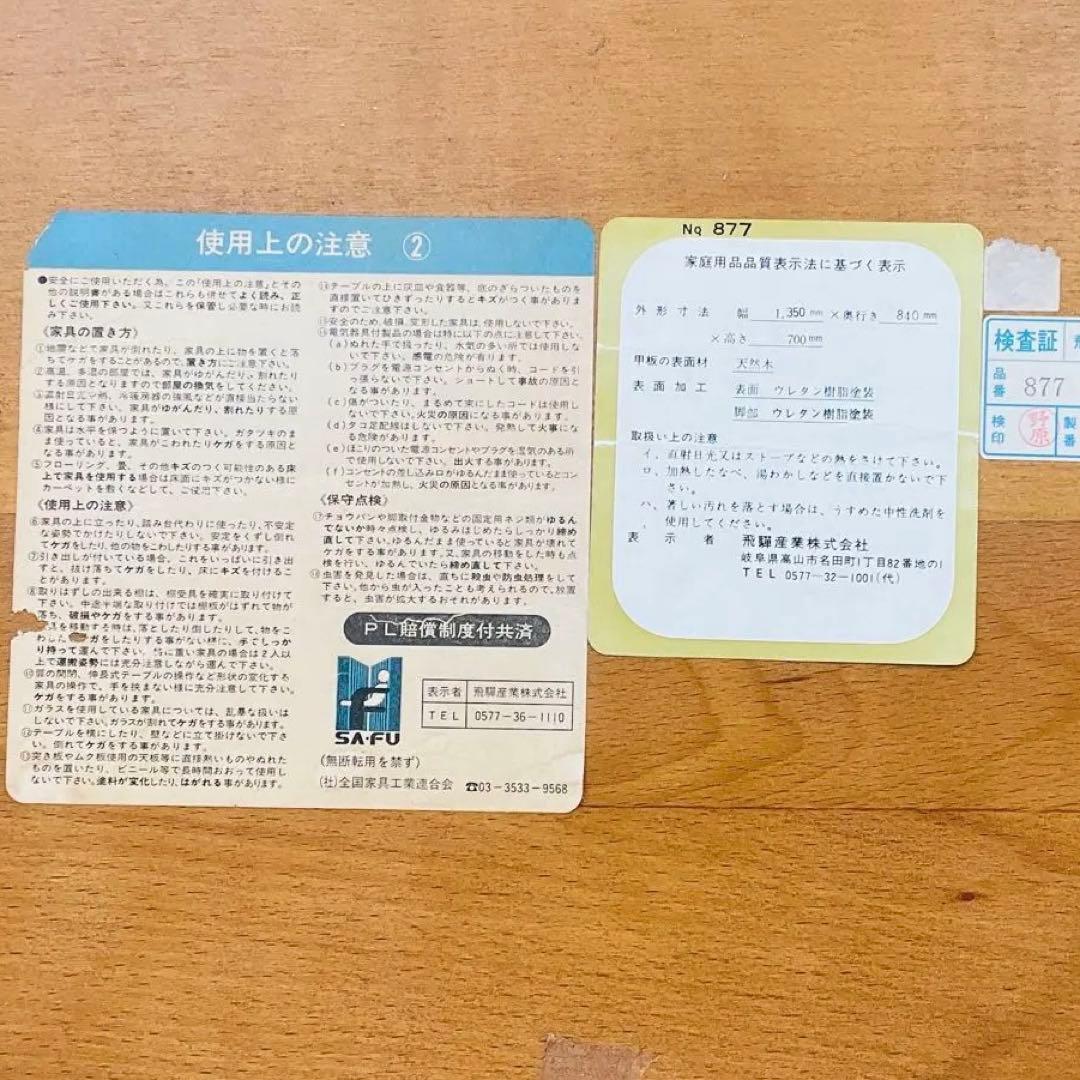 使用上の注意 ②
●安全にご使用いただく為、この「使用上の注意」とその
他の説明書がある場合はこれらも併せてよく読み、正
しくご使用下さい。又これらを保管し必要な時にお読
み下さい。
《家具の置き方》
①地震などで家具が倒れたり、家具の上に物を置くと落
ちてケガをすることがあるので、置き方にご注意下さい。
②高温、多湿の部屋では、家具がゆがんだり、割れたり
する原因となりますので部屋の換気をしてください。
③直射日光や熱、冷暖房器の強風などが直接当たらない
様にして下さい。家具がゆがんだり、割れたりする原
因となる事があります。
④家具は水平を保つように置いて下さい。ガタツキのま
ま使っていると、家具がこわれたりケガをする原因と
なる事があります。
⑤フローリング、畳、その他キズのつく可能性のある床
上で家具を使用する場合は床面にキズがつかない様に
カーペットを敷くなどして、ご使用下さい。
《使用上の注意》
⑥家具の上に立ったり、踏み台代わりに使ったり、不安定
な姿勢でかけたりしないで下さい。安定をくずし倒れ
てケガをしたり、他の物をこわしたりする事があります。
⑦引き出しが付いている場合、これをいっぱいに引き出
すと、抜け落ちてケガをしたり、床にキズを付けるこ
とがあります。
⑧取りはずしの出来る棚は、棚受具を確実に取り付けて
下さい。中途半端な取り付けでは棚板がはずれて物が
落ち、破損やケガをする事があります。
を移動する時は、落としたり倒したりして、物をこ
わしたり ガをしたりする事がない様に、手でしっか
り持って運んで下さい。特に重い家具の場合は2人以
上で運搬姿勢には充分注意しながら運んで下さい。
⑩扉の開閉、伸長式テーブルの操作など形状の変化する
家具の操作で、手を挟まない様に充分注意して下さい。
ケガをする事があります。
⑪ガラスを使用している家具については、乱暴な扱いは
しないで下さい。ガラスが割れてケガをする事があります。
⑫テーブルを横にしたり、壁などに立て掛けないで下さ
い。倒れてケガをする事があります。
⑬突き板やムク板使用の天板等に直接熱いものやぬれた
ものを置いたり、ビニール等で長時間おおって使用し
ないで下さい。塗料が変化したり、はがれる事があります。
⑭テーブルの上に灰皿や食器等、底のざらついたものを
直接置いてひきずったりするとキズがつく事がありま
すのでご注意下さい。
⑮安全のため、破損、変形した家具は、使用しないで下さい。
⑯電気器具付製品の場合は特に以下の点に注意して下さい。
(a)ぬれた手で扱ったり、水気の多い所では使用しな
いで下さい。感電の危険が有ります。
(b)プラグを電源コンセントからぬく時、コードを引
っ張らないで下さい。ショートして事故の原因と
なる事があります。
(c)傷がついたり、まるめて束にしたコードは使用し
ないで下さい。火災の原因になる事があります。
(d)タコ足配線はしないで下さい。発熱して火事にな
る危険があります。
(e)ほこりのついた電源コンセントやプラグを湿気のある所
で使用しないで下さい。出火する事があります。
(f)コンセントの差し込み口がゆるんだまま使っているとコン
セントが加熱し、火災の原因となる事があります。
《保守点検》
⑰チョウバンや脚取付金物などの固定用ネジ類がゆるん
でないか時々点検し、ゆるみはじめたらしっかり締め
直して下さい。ゆるんだまま使っていると家具が壊れて
ケガをする事があります。又、家具の移動をした時も点
検を行い、ゆるんでいたら締め直して下さい。
⑱虫害を発見した場合は、直ちに殺虫や防虫処理をして
下さい。他から虫が入ったことも考えられるので、放置
すると、虫害が拡大するおそれがあります。
PL賠償制度付共済
SA·FU
表示者 飛騨産業株式会社
TEL 0577-36-1110
(無断転用を禁ず)
(社)全国家具工業連合会 ☎03-3533-9568
No 877
家庭用品品質表示法に基づく表示
外形寸法 幅 1,350 mm ×奥行き 840 mm
×高さ 700 mm
甲板の表面材 天然木
表面加工 表面 ウレタン樹脂塗装
脚部 ウレタン樹脂塗装
取扱い上の注意
イ、直射日光又はストーブなどの熱をさけて下さい。
ロ、加熱したなべ、湯わかしなどを直接置かないで下
さい。
ハ、著しい汚れを落とす場合は、うすめた中性洗剤を
使用してください。
表示者 飛騨産業株式会社
岐阜県高山市名田町1丁目82番地の1
TEL 0577-32-1001(代)
検査証 飛
品番 877
検印 野原 製番